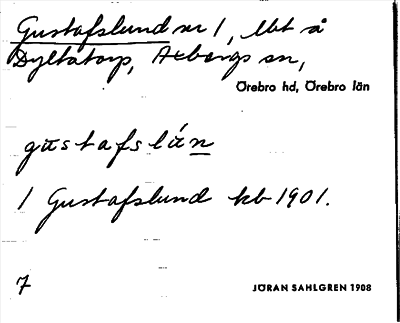 Gustafslund nr 1, lht å
Dyltatorp, Axbergs sn,
Örebro hd, Örebro län
gustafslún
1 Gustafslund kb 1901.
7
JÖRAN SAHLGREN 1908